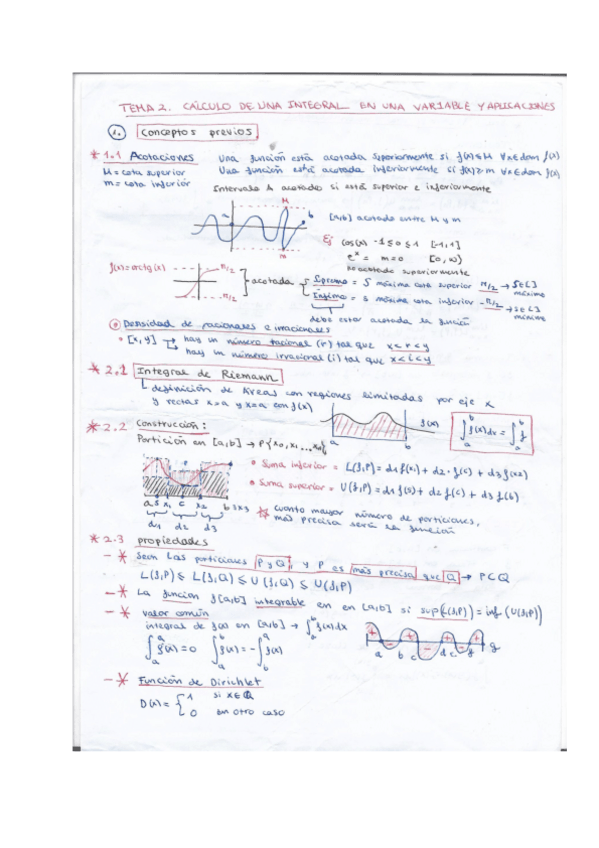 TEMA 2. CÁLCULO DE UNA INTEGRAL EN UNA VARIABLE Y APLICACIONES
1. Conceptos previos
* 1.1 Acotaciones Una función está acotada superiormente si f(x) ≤ M ∀x ∈ dom f(x)
M = cota superior Una función está acotada inferiormente si f(x) ≥ m ∀x ∈ dom f(x)
m = cota inferior
Intervalo A acotado si está superior e inferiormente
M
a b
m
[a,b] acotado entre M y m
Ej cos(x) -1 ≤ 0 ≤ 1 [-1,1]
e^x = m=0 [0, ∞)
no acotado superiormente
f(x)=arctg(x) π/2
-π/2
acotada
Supremo = S máxima cota superior π/2 → S∈[]
máximo
Ínfimo = s máxima cota inferior -π/2 → s∈[]
mínimo
debe estar acotada la función
Densidad de racionales e irracionales
• [x,y] → hay un número racional (r) tal que x<r<y
hay un número irracional (i) tal que x<i<y
* 2.1 Integral de Riemann
definición de áreas con regiones limitadas por eje x
y rectas x=a y x=a con f(x)
f(x)
a b
∫_a^b f(x)dx = ∫_a^b f
* 2.2 Construcción:
Partición en [a,b] → P{x0, x1, ... xn}
• Suma inferior = L(f,P) = d1 f(x1) + d2·f(c) + d3 f(x2)
• Suma superior = U(f,P) = d1 f(s) + d2 f(c) + d3 f(b)
a s x1 c x2 b s x3
d1 d2 d3
* cuanto mayor número de particiones,
más precisa será la función
* 2.3 propiedades
-* Sean las particiones P y Q, y P es más precisa que Q → P⊂Q
L(f,P) ≤ L(f,Q) ≤ U(f,Q) ≤ U(f,P)
-* La función f[a,b] integrable en en [a,b] si sup(L(f,P)) = inf (U(f,P))
-* valor común
integral de f(x) en [a,b] → ∫_a^b f(x)dx
∫_a^a f(x) = 0 ∫_a^b f(x) = -∫_b^a f(x)
+ + + +
- -
a b c d e f g
-* Función de Dirichlet
D(x) = { 1 si x∈Q
0 en otro caso